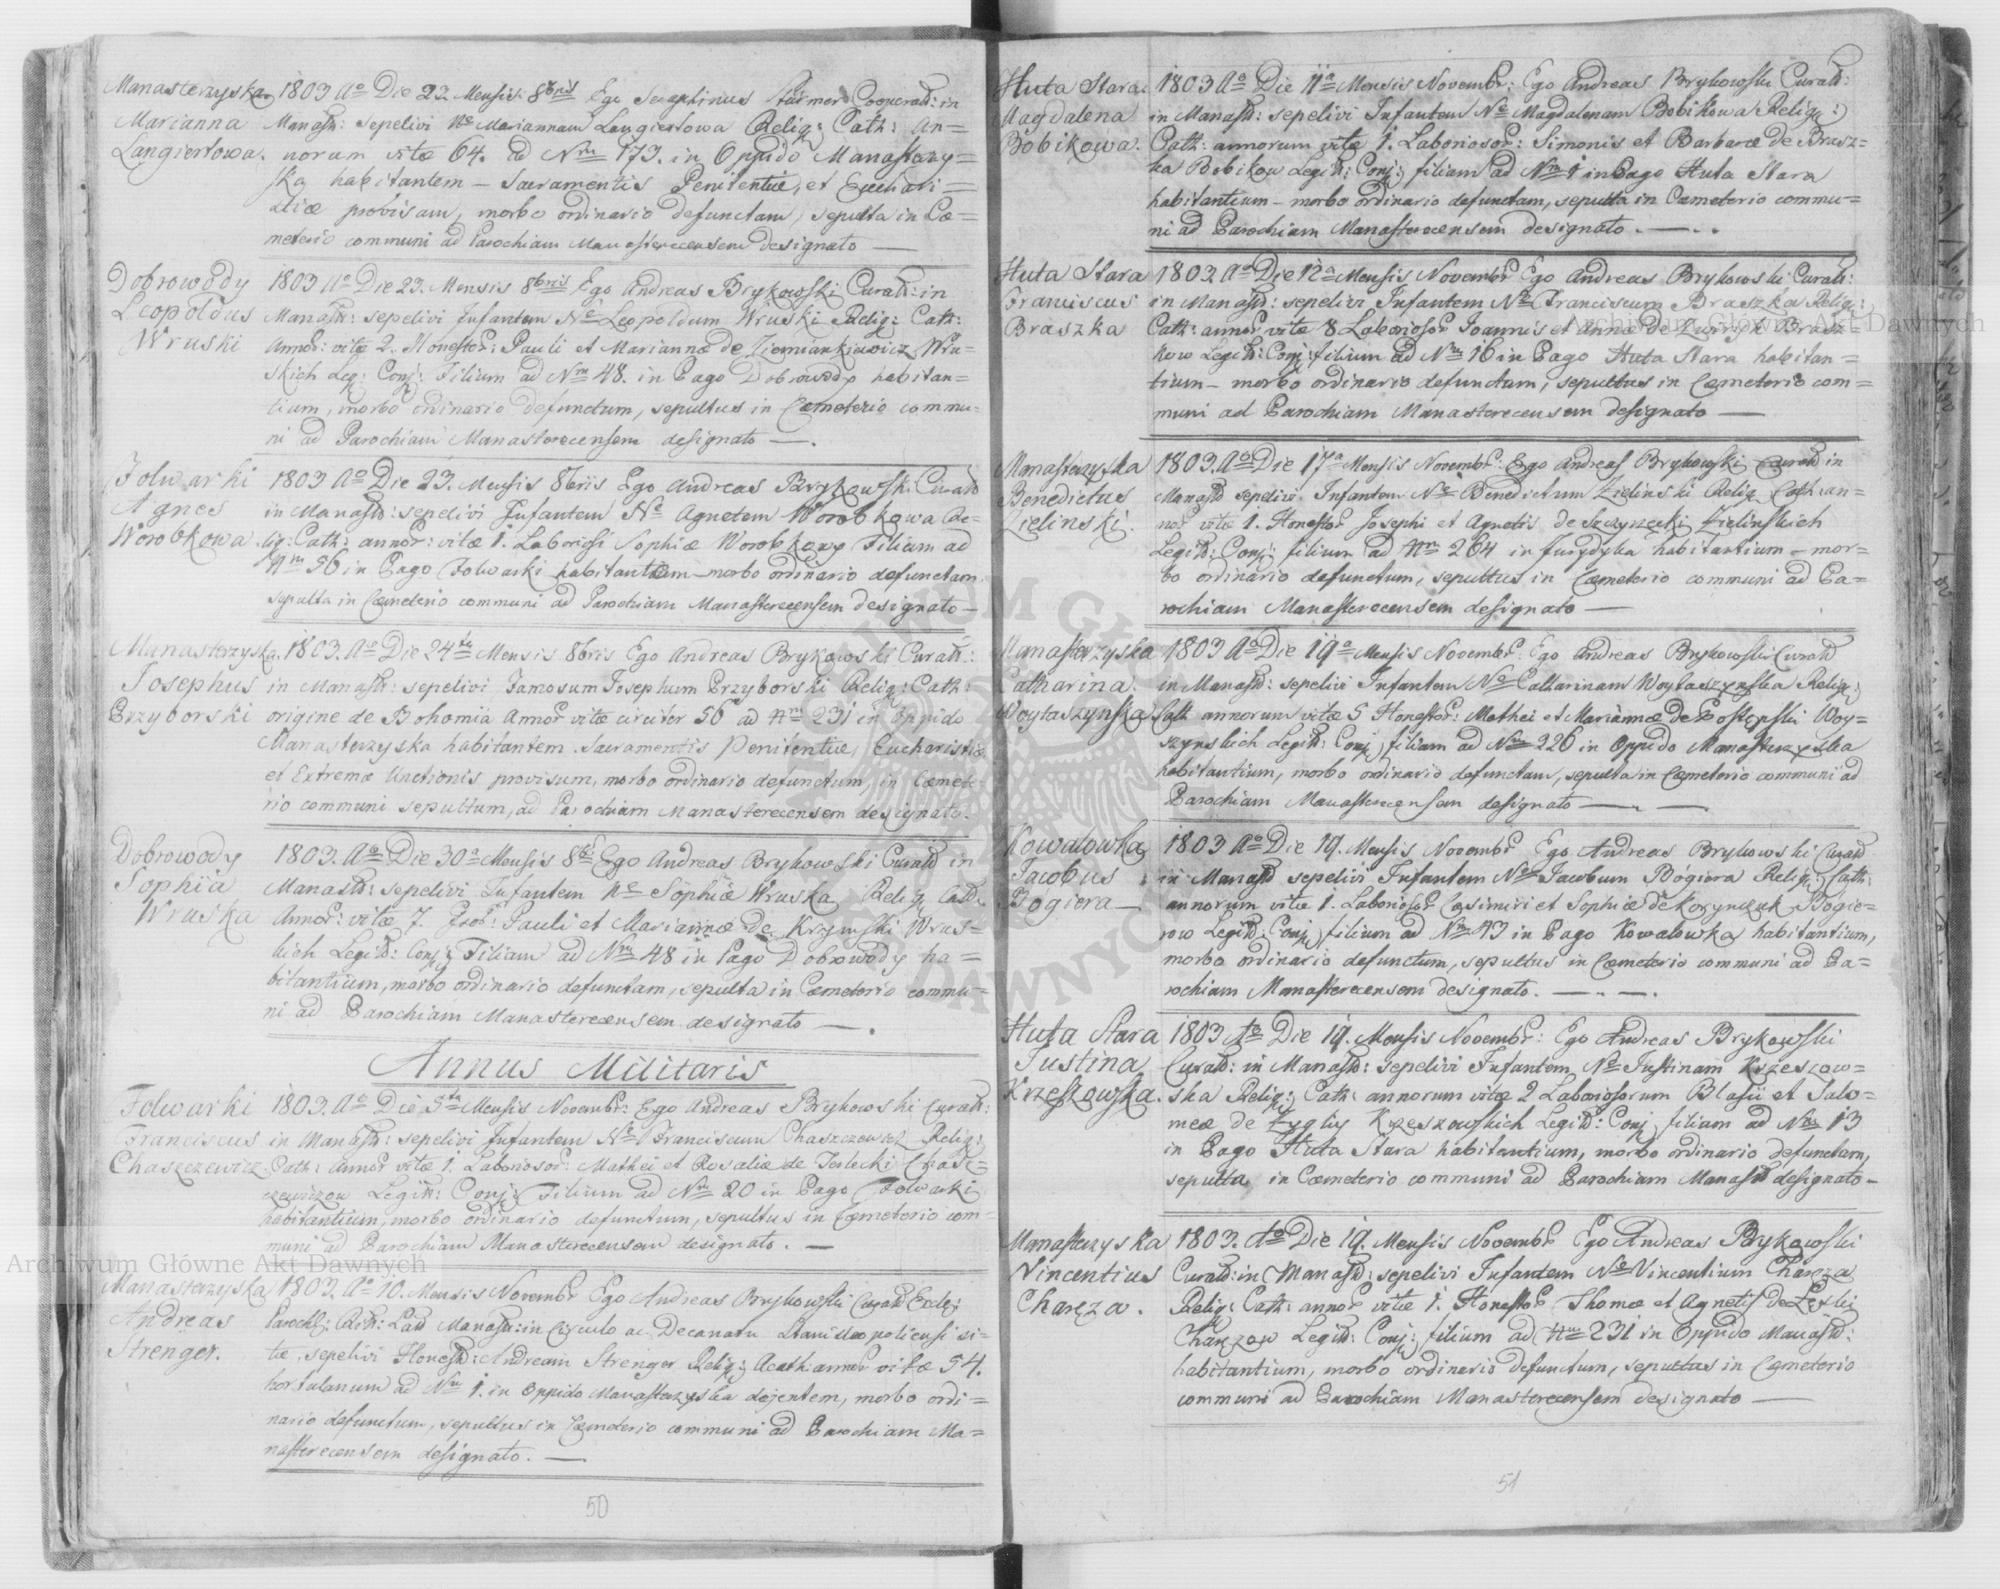 Manasterzyska
Marianna
Langiertowa.
1803 Ao Die 22. Mensis 8bris Ego Seraphinus Stürmer Cooperat: in
Manast: sepelivi Ne Mariannam Langiertowa Relig: Cath: an=
norum vitæ 64. ad Nm 173. in Oppido Manasterzy=
ska habitantem – Sacramentis Penitentiæ, et Euchari=
stiæ provisam, morbo ordinario defunctam, sepulta in Cæ=
meterio communi ad Parochiam Manasterecensem designato —
Dobrowody
Leopoldus
Wruski
1803 Ao Die 23. Mensis 8bris Ego Andreas Brykowski Curat: in
Manast: sepelivi Infantem Ne Leopoldum Wruski Relig: Cath:
Annor: vitæ 2. Honestor: Pauli et Mariannæ de Ziemiankiewicz Wru=
skich Leg: Conj: Filium ad Nm 48. in Pago Dobrowody habitan=
tium, morbo ordinario defunctum, sepultus in Cæmeterio commu=
ni ad Parochiam Manasterecensem designato —.
Folwarki
Agnes
Worobkowa.
1803 Ao Die 23. Mensis 8bris Ego Andreas Brykowski Curat
in Manast: sepelivi Infantem Ne Agnetem Worobkowa Re=
lig: Cath: annor: vitæ 1. Laboriosi Sophiæ Worobkowy Filiam ad
Nm 56 in Pago Folwarki habitantem – morbo ordinario defunctam
sepulta in Cæmeterio communi ad Parochiam Manasterecensem designato –
Manasterzyska.
Josephus
Przyborski
1803. Ao Die 24ta Mensis 8bris Ego Andreas Brykowski Curat:
in Manast: sepelivi Famosum Josephum Przyborski Relig: Cath:
origine de Bohomia Annor vitæ circiter 56 ad Nm 231 in Oppido
Manasterzyska habitantem. Sacramentis Penitentiæ, Eucharistiæ
et Extremæ Unctionis provisum, morbo ordinario defunctum, in Cæmete=
rio communi sepultum, ad Parochiam Manasterecensem designato.
Dobrowody
Sophia
Wruska
1803. Ao Die 30a Mensis 8bris Ego Andreas Brykowski Curat in
Manast: sepelivi Infantem Ne Sophiæ Wruska Relig Cath:
Annor: vitæ 7. Pauli et Mariannæ de Krzywski Wrus=
kich Legit: Conj: Filiam ad Nm 48 in Pago Dobrowody ha=
bitantium, morbo ordinario defunctam, sepulta in Cæmeterio commu=
ni ad Parochiam Manasterecensem designato —.
Annus Militaris
Folwarki
Franciscus
Chaszczewicz
1803. Ao Die 5ta Mensis Novembr: Ego Andreas Brykowski Curat:
in Manast: sepelivi Infantem Ne Franciscum Chaszczewicz Relig:
Cath: Annor vitæ 1. Laboriosor: Mathei et Rosaliæ de Terlecki Chasz=
czewiczow Legit: Conj: Filium ad Nm 20 in Pago Folwarki
habitantium, morbo ordinario defunctum, sepultus in Cæmeterio com=
muni ad Parochiam Manasterecensem designato. —
Manasterzyska
Andreas
Strenger.
1803. Ao 10. Mensis Novembr Ego Andreas Brykowski Curat Eccle:
Parochl: Rit: Lat Manast: in Circulo ac Decanatu Stanislaopoliensi si=
tæ, sepelivi Honest: Andream Strenger Relig: Acath: annor vitæ 54.
hortulanum ad Nm 1. in Oppido Manasterzyska dejentem, morbo ordi=
nario defunctum, sepultus in Cæmeterio communi ad Parochiam Ma=
nasterecensem designato. —
50
Huta Stara
Magdalena
Bobikowa.
1803 Ao Die 11a Mensis Novembr: Ego Andreas Brykowski Curat:
in Manast: sepelivi Infantem Ne Magdalenam Bobikowa Relig:
Cath: annorum vitæ 1. Laboriosor: Simonis et Barbaræ de Brasz=
ka Bobikow Legit: Conj: filiam ad Nm 1 in Pago Huta Stara
habitantium – morbo ordinario defunctam, sepulta in Cæmeterio commu=
ni ad Parochiam Manasterecensem designato. —..
Huta Stara
Franciscus
Braszka
1803. Ao Die 12a Mensis Novembr Ego Andreas Brykowski Curat:
in Manast: sepelivi Infantem Ne Franciscum Braszka Relig:
Cath: annor vitæ 8 Laboriosor Joannis et Annæ de Brasz=
kow Legit: Conj: filium ad Nm 16 in Pago Huta Stara habitan=
tium – morbo ordinario defunctum, sepultus in Cæmeterio com=
muni ad Parochiam Manasterecensem designato —
Manasterzyska
Benedictus
Zielinski.
1803. Ao Die 17a Mensis Novembr: Ego Andreas Brykowski Curat in
Manast sepelivi Infantem Ne Benedictum Zielinski Relig Cath: an=
nor vitæ 1. Honestor Josephi et Agnetis de Szczyrzecki Zielinskich
Legit: Conj: filium ad Nm 264 in Jurydyka habitantium – mor=
bo ordinario defunctum, sepultus in Cæmeterio communi ad Pa=
rochiam Manasterecensem designato —
Manasterzyska
Catharina
Woytaszynska
1803 Ao Die 19a Mensis Novembr: Ego Andreas Brykowski Curat
in Manast: sepelivi Infantem Ne Catharinam Woytaszynska Relig:
Cath annorum vitæ 5 Honestor: Mathei et Mariannæ de Postępski Woy=
szynskich Legit: Conj: filiam ad Nm 226 in Oppido Manasterzyska
habitantium, morbo ordinario defunctam, sepulta in Cæmeterio communi ad
Parochiam Manasterecensem designato —
Kowalowka
Jacobus
Bogiera —
1803 Ao Die 19. Mensis Novembr Ego Andreas Brykowski Curat
in Manast sepelivi Infantem Ne Jacobum Bogiera Relig: Cath:
annorum vitæ 1. Laboriosor Casimiri et Sophiæ de Korynczuk Bogie=
row Legit: Conj: filium ad Nm 43 in Pago Kowalowka habitantium,
morbo ordinario defunctum, sepultus in Cæmeterio communi ad Pa=
rochiam Manasterecensem designato. —.—.
Huta Stara
Justina
Krzeszowska.
1803 Ao Die 19. Mensis Novembr: Ego Andreas Brykowski
Curat: in Manast: sepelivi Infantem Ne Justinam Krzeszow=
ska Relig: Cath: annorum vitæ 2 Laboriosorum Blasii et Salo=
meæ de Zygliy Krzeszowskich Legit: Conj filiam ad Nm 13
in Pago Huta Stara habitantium, morbo ordinario defunctam,
sepulta in Cæmeterio communi ad Parochiam Manast designato –
Manasterzyska
Vincentius
Charęza.
1803. Ao Die 19. Mensis Novembr Ego Andreas Brykowski
Curat: in Manast: sepelivi Infantem Ne Vincentium Charęza
Relig: Cath: annor vitæ 1. Honestor Thomæ et Agnetis de
Charęzow Legit: Conj: filium ad Nm 231 in Oppido Manast:
habitantium, morbo ordinario defunctum, sepultus in Cæmeterio
communi ad Parochiam Manasterecensem designato —
51
Archiwum Główne Akt Dawnych
Archiwum Główne Akt Dawnych